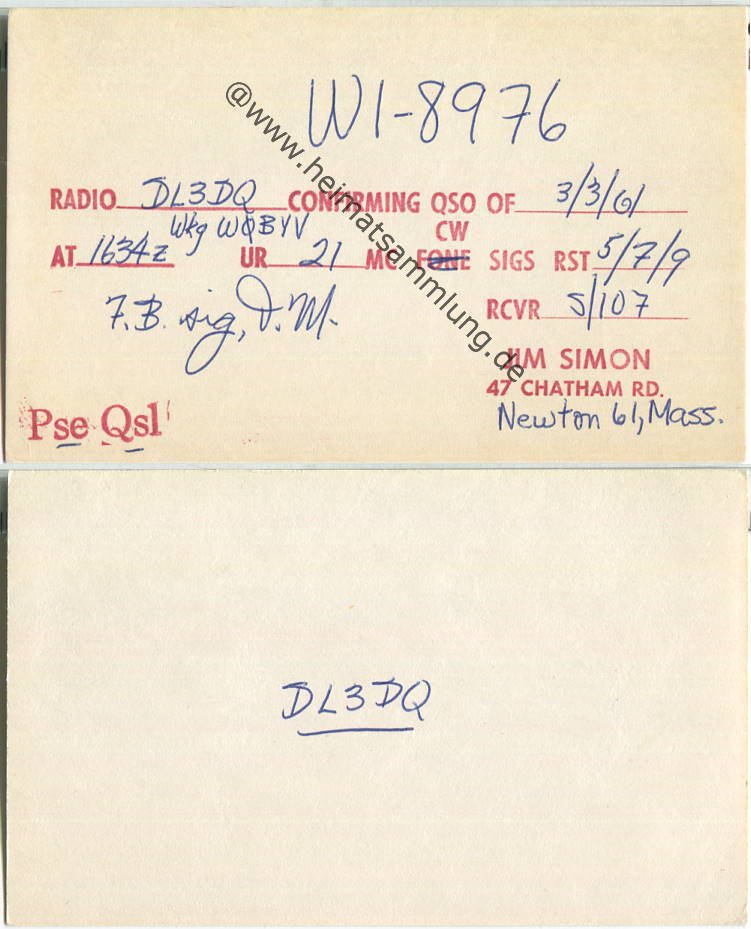 W1-8976
RADIO DL3DQ CONFIRMING QSO OF 3/3/61
Wkg WQBYV CW
AT 1634z UR 21 MC FONE SIGS RST 5/7/9
F.B. sig, O.M.
RCVR S/107
JIM SIMON
47 CHATHAM RD.
Newton 61, Mass.
Pse Qsl
@www.heimatsammlung.de
DL3DQ